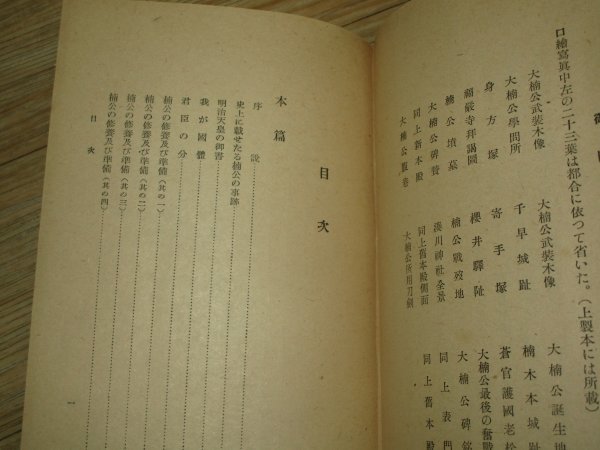 口繪寫眞中左の二十三葉は都合に依つて省いた。(上製本には所載)
大楠公武裝木像
大楠公武裝木像
大楠公誕生地
大楠公學問所
千早城趾
楠木本城趾
身方塚
寄手塚
蒼官護國老松
櫻井驛趾
大楠公最後の奮戰
楠公墳墓
楠公戰歿地
大楠公碑銘
大楠公碑贊
湊川神社全景
同上表門
同上新本殿
同上舊本殿側面
同上舊本殿
大楠公所用刀劍
目次
本篇
序說
史上に載せたる楠公の事跡
明治天皇の御書
我が國體
君臣の分
楠公の修養及び準備(其の一)
楠公の修養及び準備(其の二)
楠公の修養及び準備(其の三)
楠公の修養及び準備(其の四)
目次
一